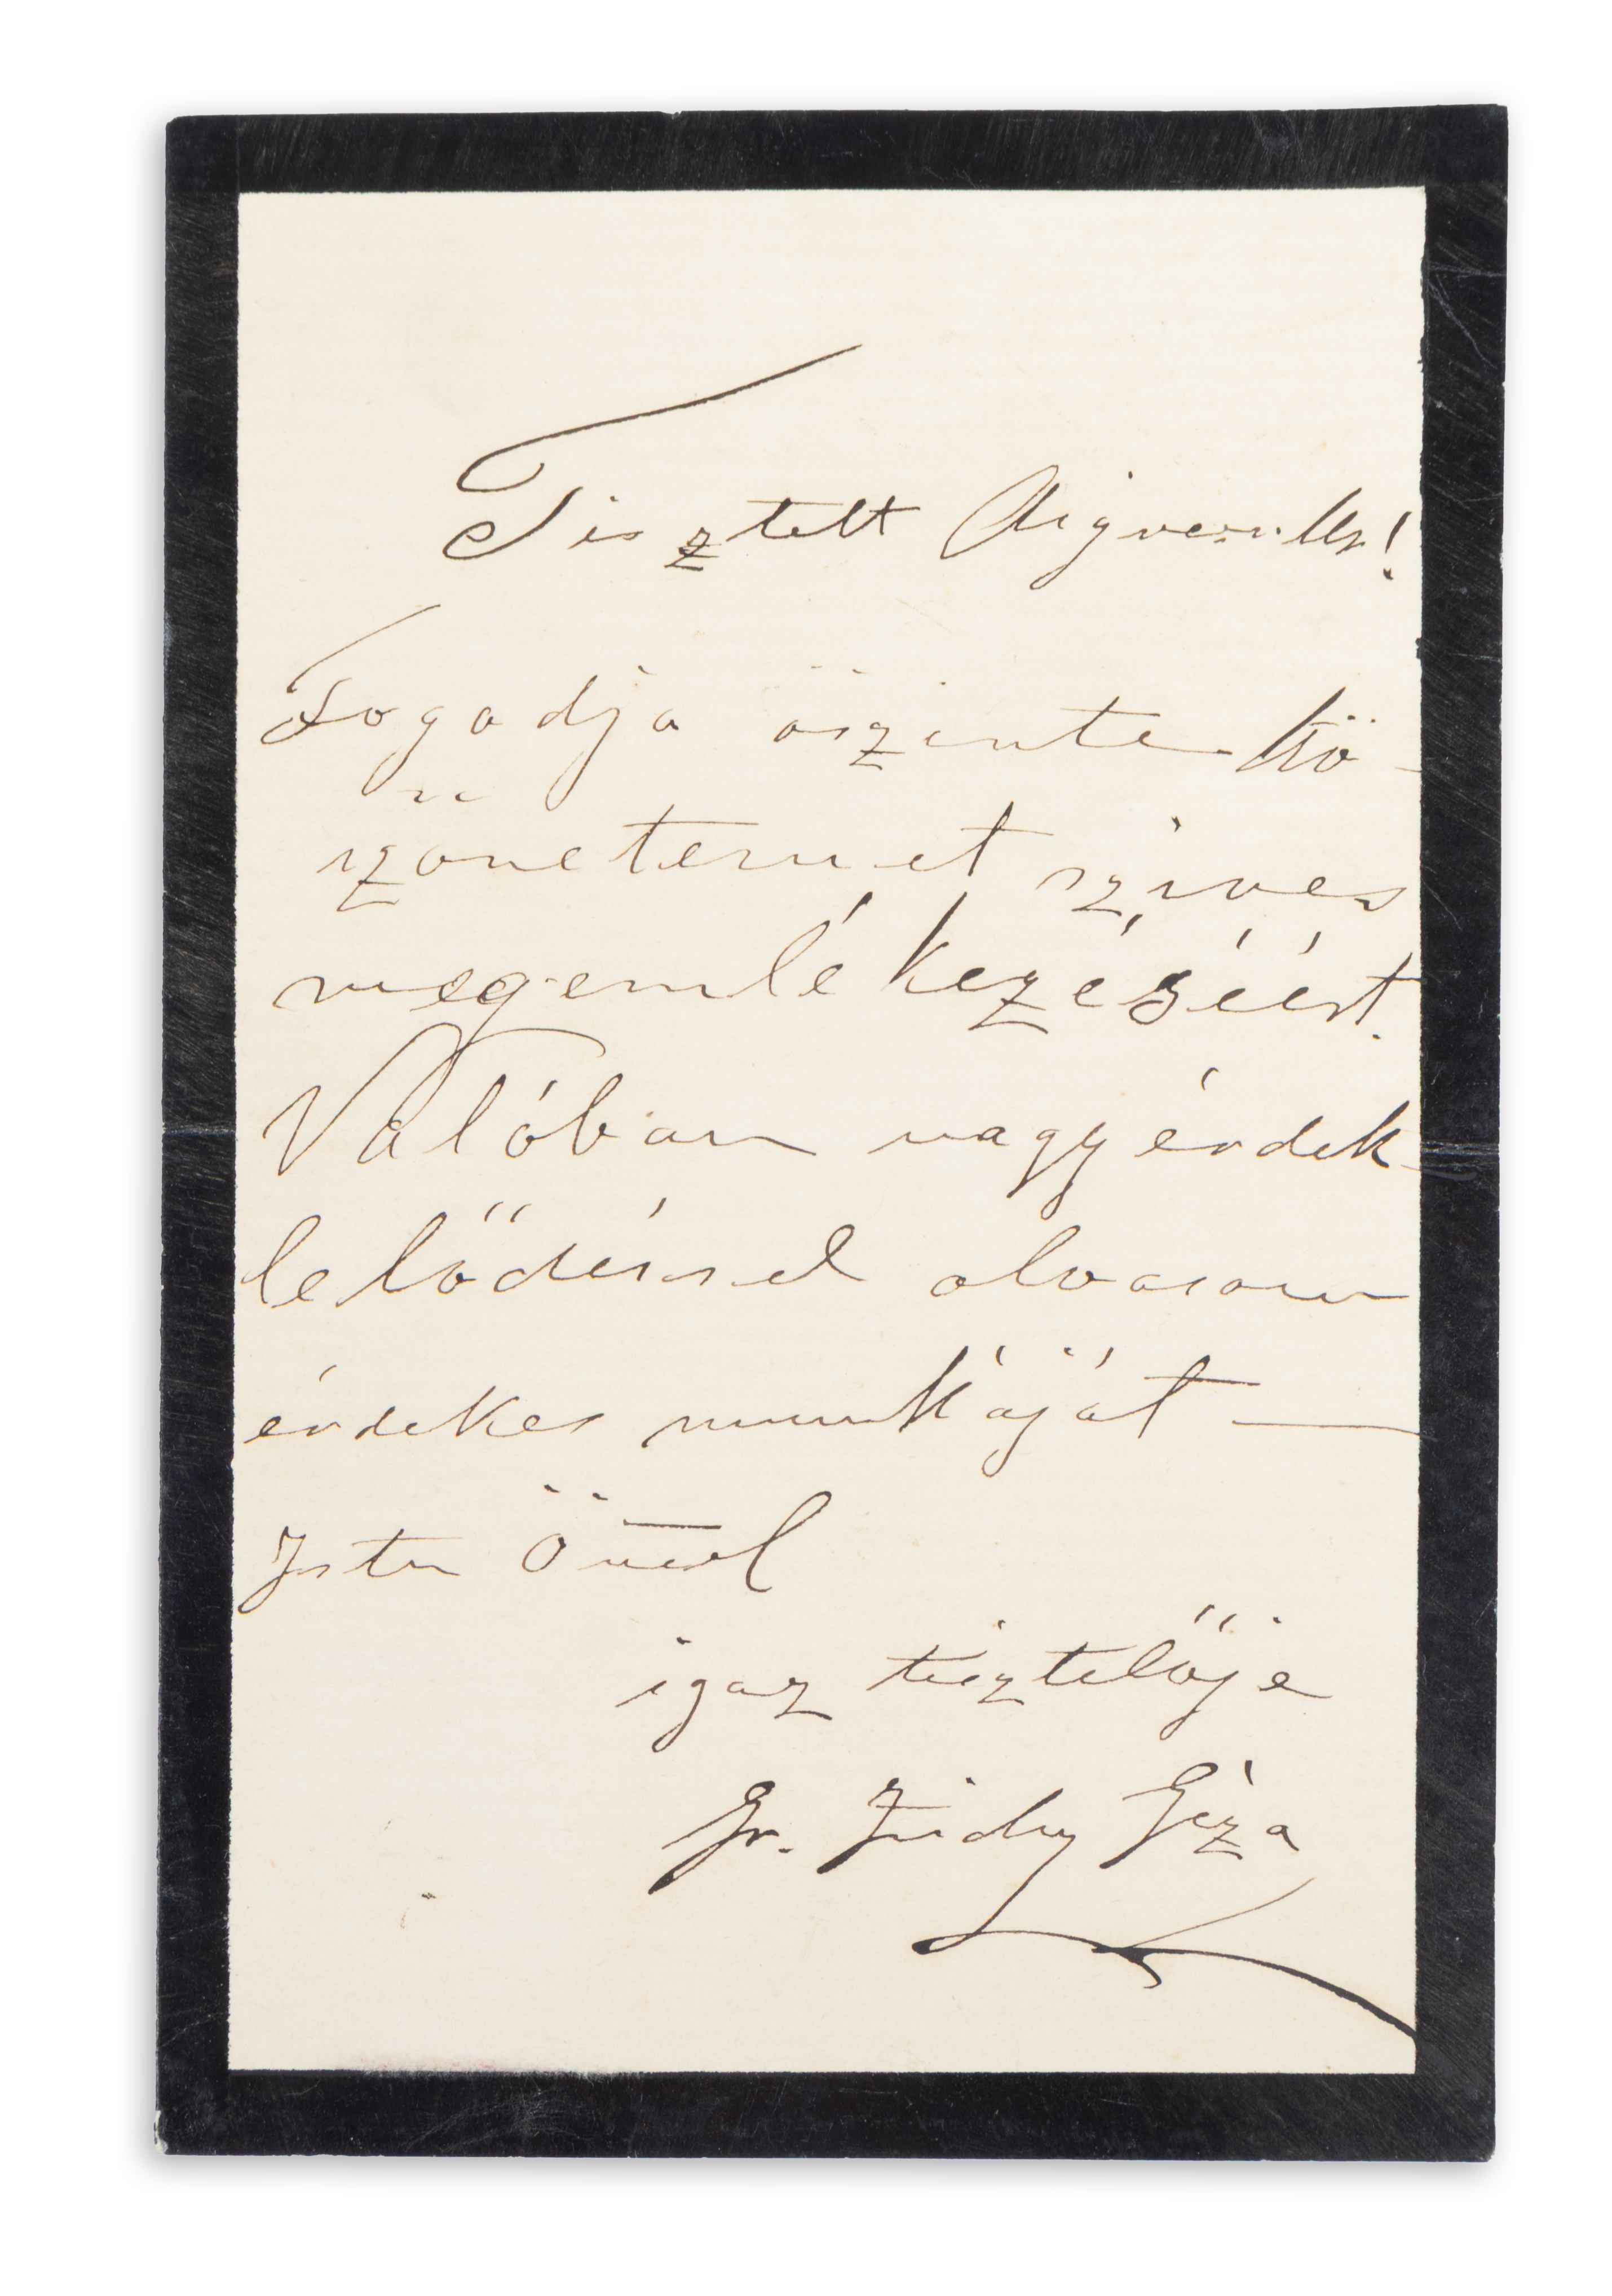 Tisztelt Aigner Ur!
Fogadja öszinte kö-
szönetemet szives
megemlékezéséért.
Valóban nagy érdek-
lelődéssel olvasom
érdekes munkáját —
Isten Önnel
igaz tisztelője
Gr. Zichy Géza